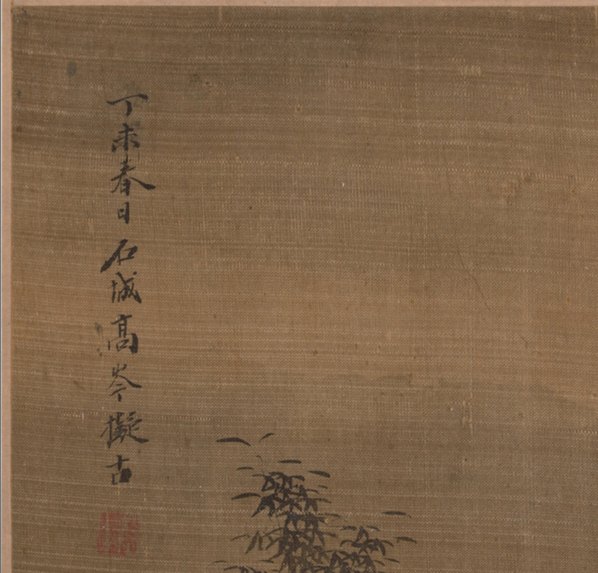 丁未春日石城高岑擬古